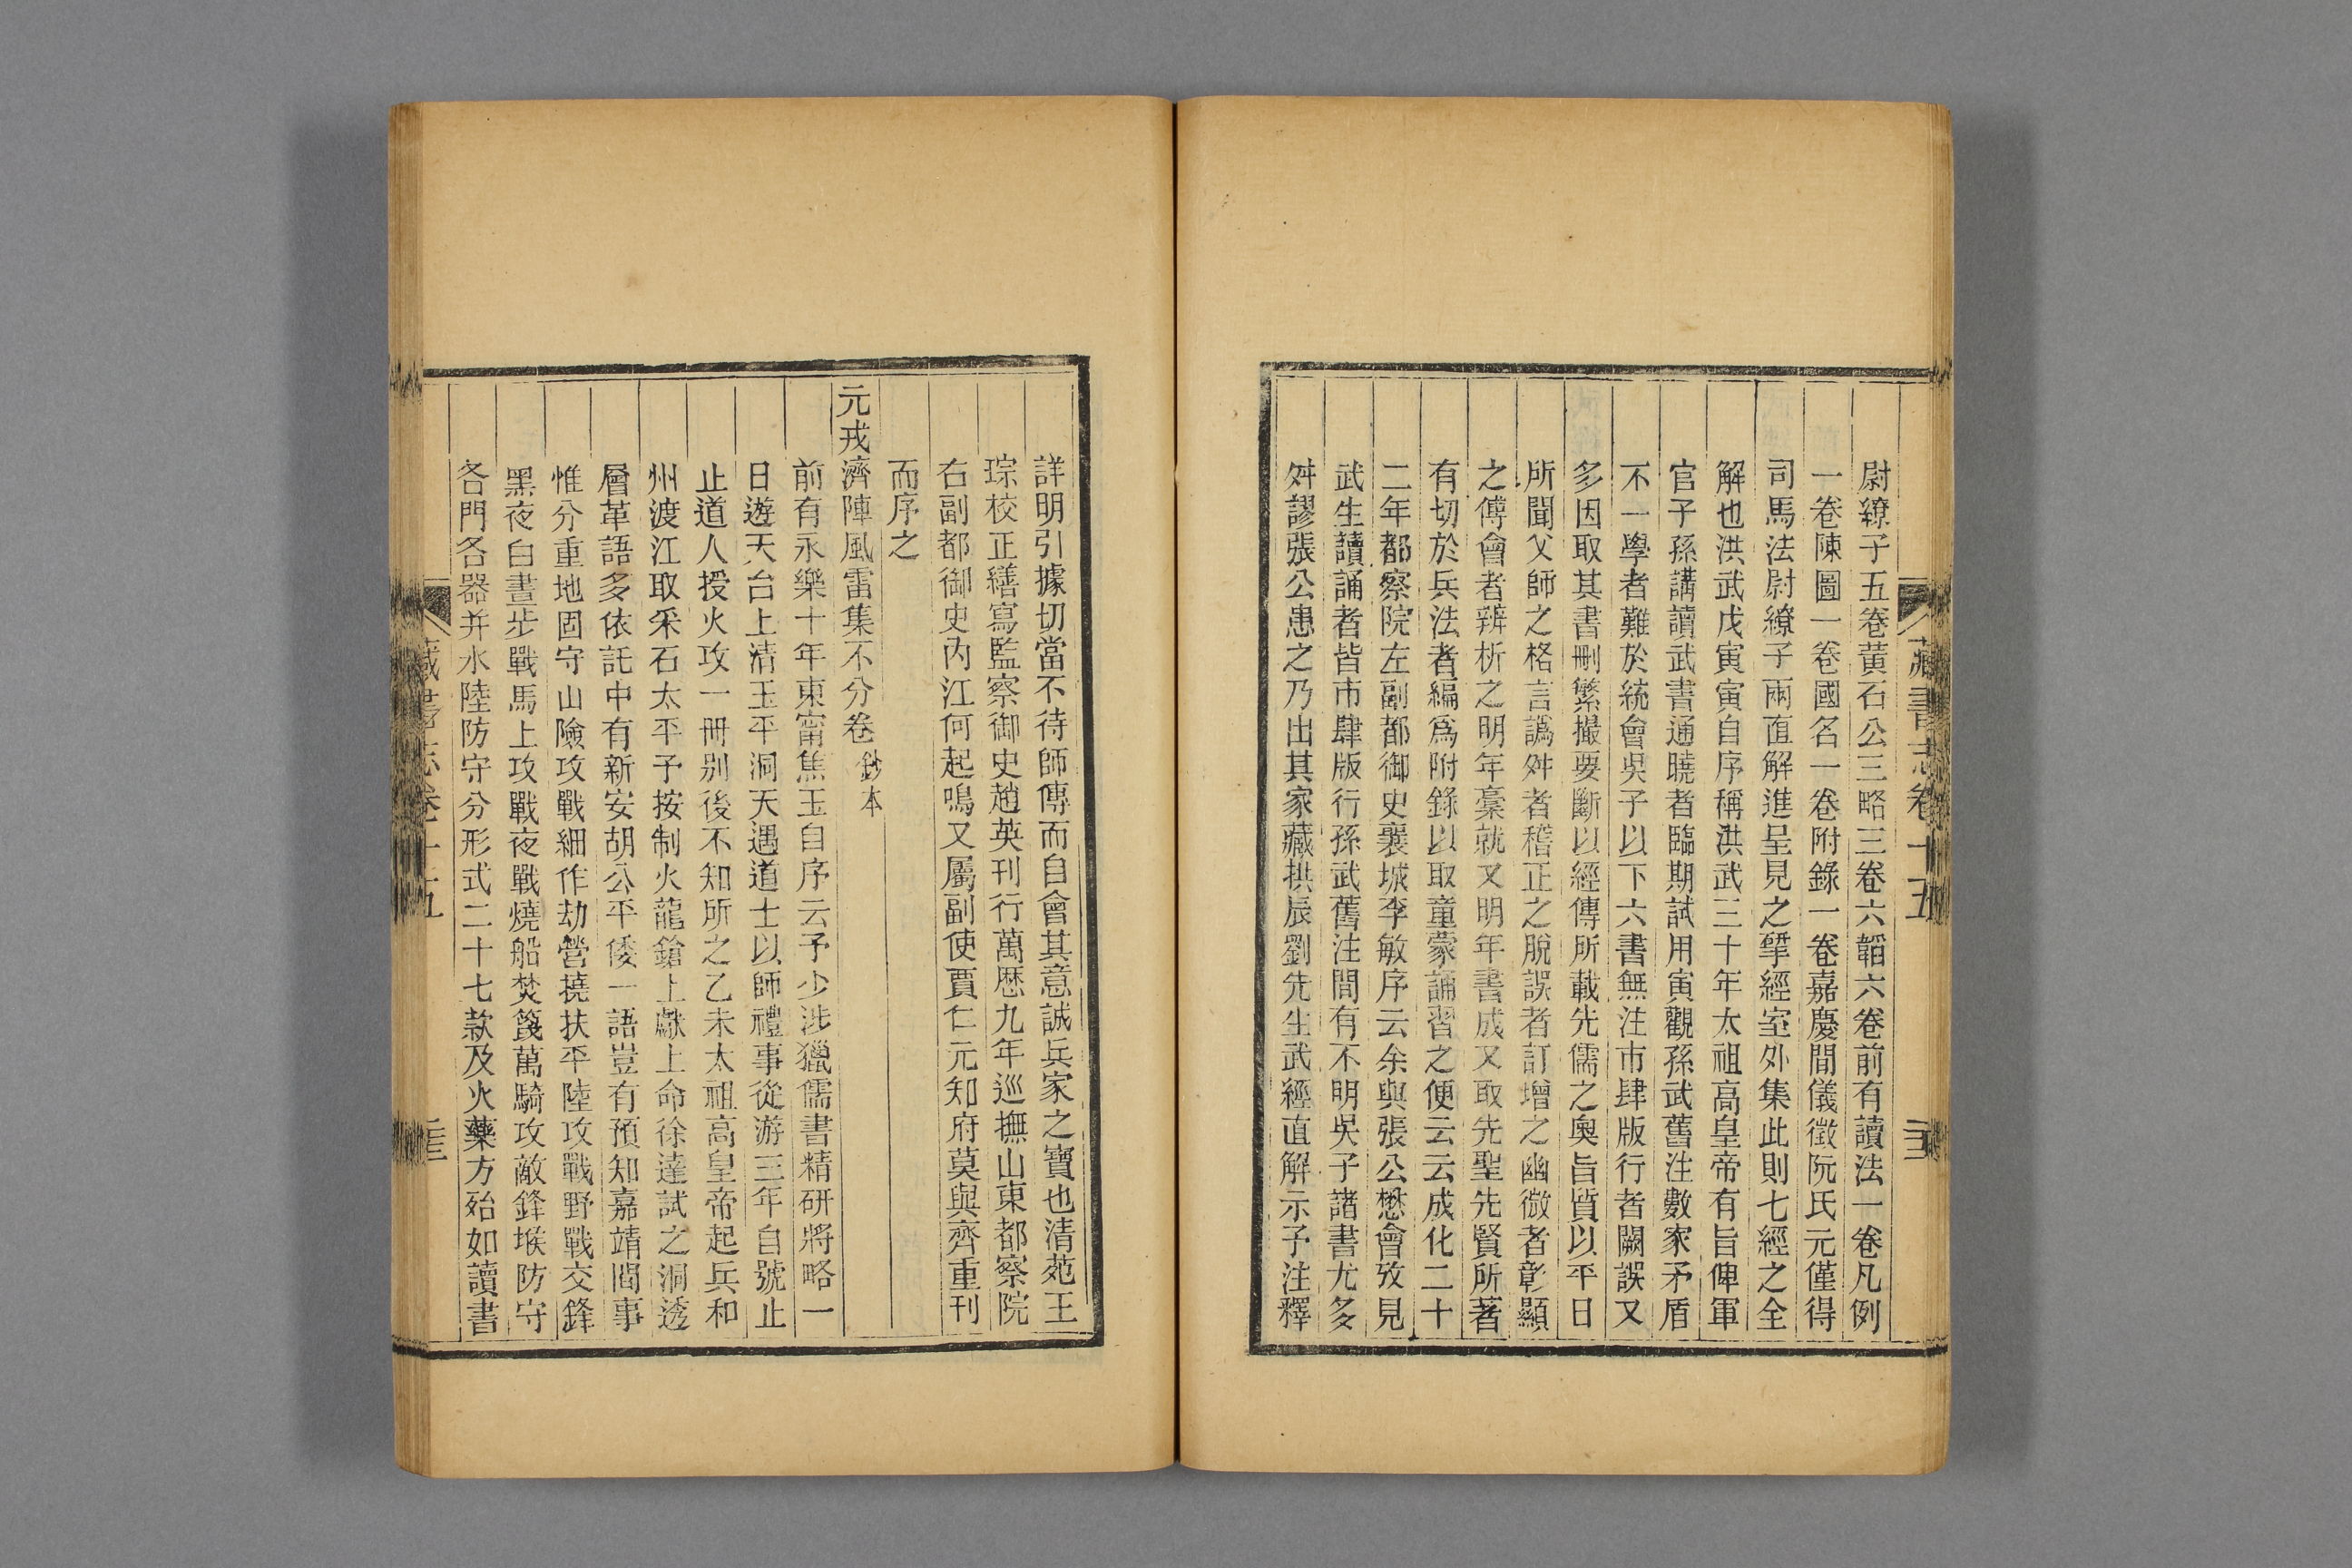 尉繚子五卷黄石公三略三卷六韜六卷前有讀法一卷凡例
一卷陳圖一卷國名一卷附錄一卷嘉慶間儀徵阮氏元僅得
司馬法尉繚子兩直解進呈見之揅經室外集此則七經之全
解也洪武戊寅寅自序稱洪武三十年太祖高皇帝有旨俾軍
官子孫講讀武書通曉者臨期試用寅觀孫武舊注數家矛盾
不一學者難於統會吳子以下六書無注市肆版行者闕誤又
多因取其書刪繁撮要斷以經傳所載先儒之奧旨質以平日
所聞父師之格言譌舛者稽正之脫誤者訂增之幽微者彰顯
之傅會者辨析之明年稾就又明年書成又取先聖先賢所著
有切於兵法者編爲附錄以取童蒙誦習之便云云成化二十
二年都察院左副都御史襄城李敏序云余與張公懋會攷見
武生讀誦者皆市肆版行孫武舊注間有不明吳子諸書尤多
舛謬張公患之乃出其家藏拱辰劉先生武經直解示予注釋
藏書志卷十五
詳明引據切當不待師傳而自會其意誠兵家之寶也清苑王
琮校正繕寫監察御史趙英刊行萬歷九年巡撫山東都察院
右副都御史內江何起鳴又屬副使賈仁元知府莫與齊重刊
而序之
元戎濟陣風雷集不分卷 鈔本
前有永樂十年東甯焦玉自序云予少涉獵儒書精研將略一
日遊天台上清玉平洞天遇道士以師禮事從游三年自號止
止道人授火攻一冊别後不知所之乙未太祖高皇帝起兵和
州渡江取采石太平予按制火龍鎗上獻上命徐達試之洞透
層革語多依託中有新安胡公平倭一語豈有預知嘉靖間事
惟分重地固守山險攻戰細作劫營撓扶平陸攻戰野戰交鋒
黑夜白晝步戰馬上攻戰夜戰燒船焚篾萬騎攻敵鋒堠防守
各門各器并水陸防守分形式二十七款及火藥方殆如讀書
藏書志卷十五